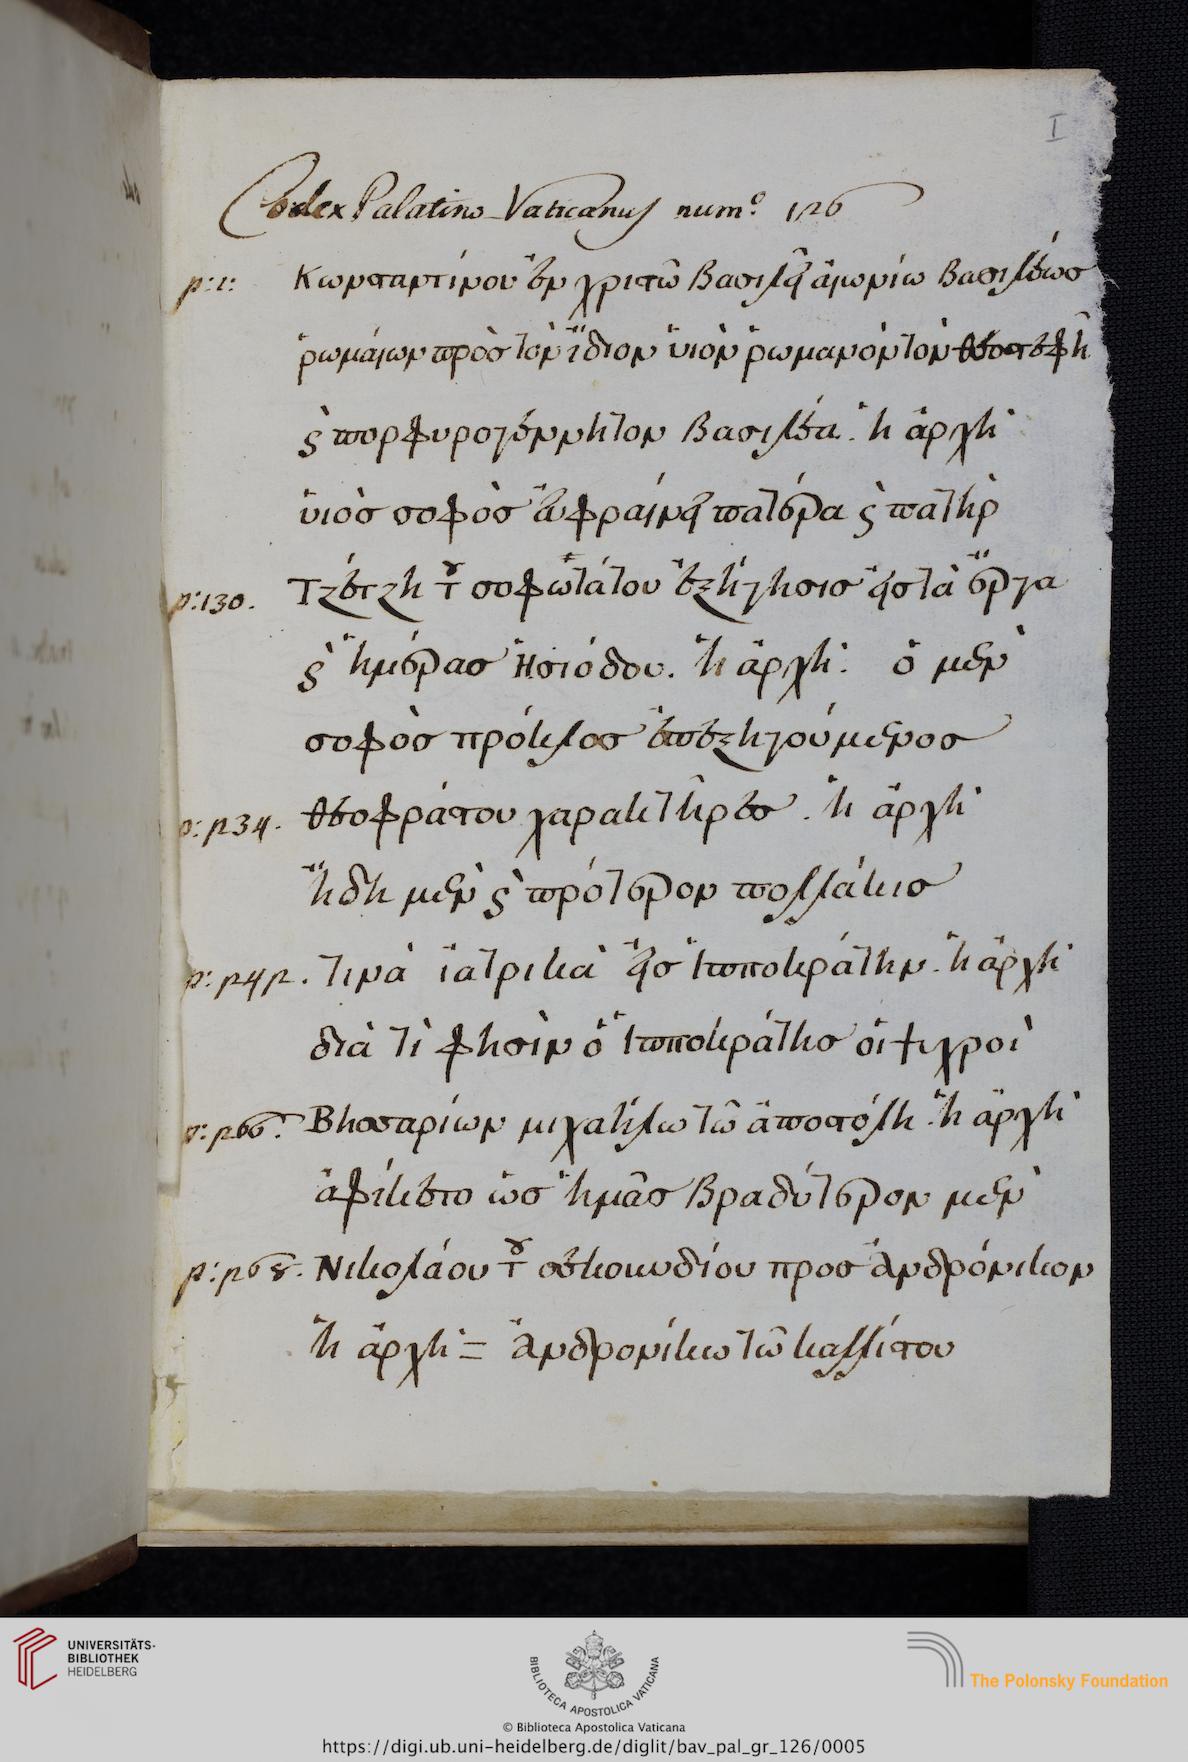 I
Codex Palatino-Vaticanus numº 126
p: 1: Κωνσταντίνου ἐν χριστῶ βασιλεῖ αἰωνίω βασιλέως
ῥωμαίων πρὸς τὸν ἴδιον υἱὸν ῥωμανὸν τὸν θεοστεφῆ
ϗ πορφυρογέννητον βασιλέα. ἡ ἀρχὴ
υἱὸς σοφὸς εὐφραίνει πατέρα ϗ πατὴρ
p: 130. Τζέτζη τοῦ σοφωτάτου ἐξήγησις εἰς τὰ ἔργα
ϗ ἡμέρας Ἡσιόδου. ἡ ἀρχὴ: ὁ μὲν
σοφὸς πρόκλος ἐπεξηγούμενος
p: 234. θεοφράστου χαρακτῆρες. ἡ ἀρχὴ
ἤδη μὲν ϗ πρότερον πολλάκις
p: 242. τινὰ ἰατρικὰ εἰς ἱπποκράτην. ἡ ἀρχὴ
διὰ τὶ φησὶν ὁ ἱπποκράτης οἱ ψυχροὶ
p: 266. Βησσαρίων μιχαήλω τῶ ἀποστόλη. ἡ ἀρχὴ
ἀφίκετο ὡς ἡμᾶς βραδύτερον μὲν
p: 268. Νικολάου τοῦ σεκουνδίου προς Ἀνδρόνικον
ἡ ἀρχὴ = Ἀνδρονίκω τῶ καλλίστου
UNIVERSITÄTS-
BIBLIOTHEK
HEIDELBERG
BIBLIOTECA APOSTOLICA VATICANA
The Polonsky Foundation
© Biblioteca Apostolica Vaticana
https://digi.ub.uni-heidelberg.de/diglit/bav_pal_gr_126/0005